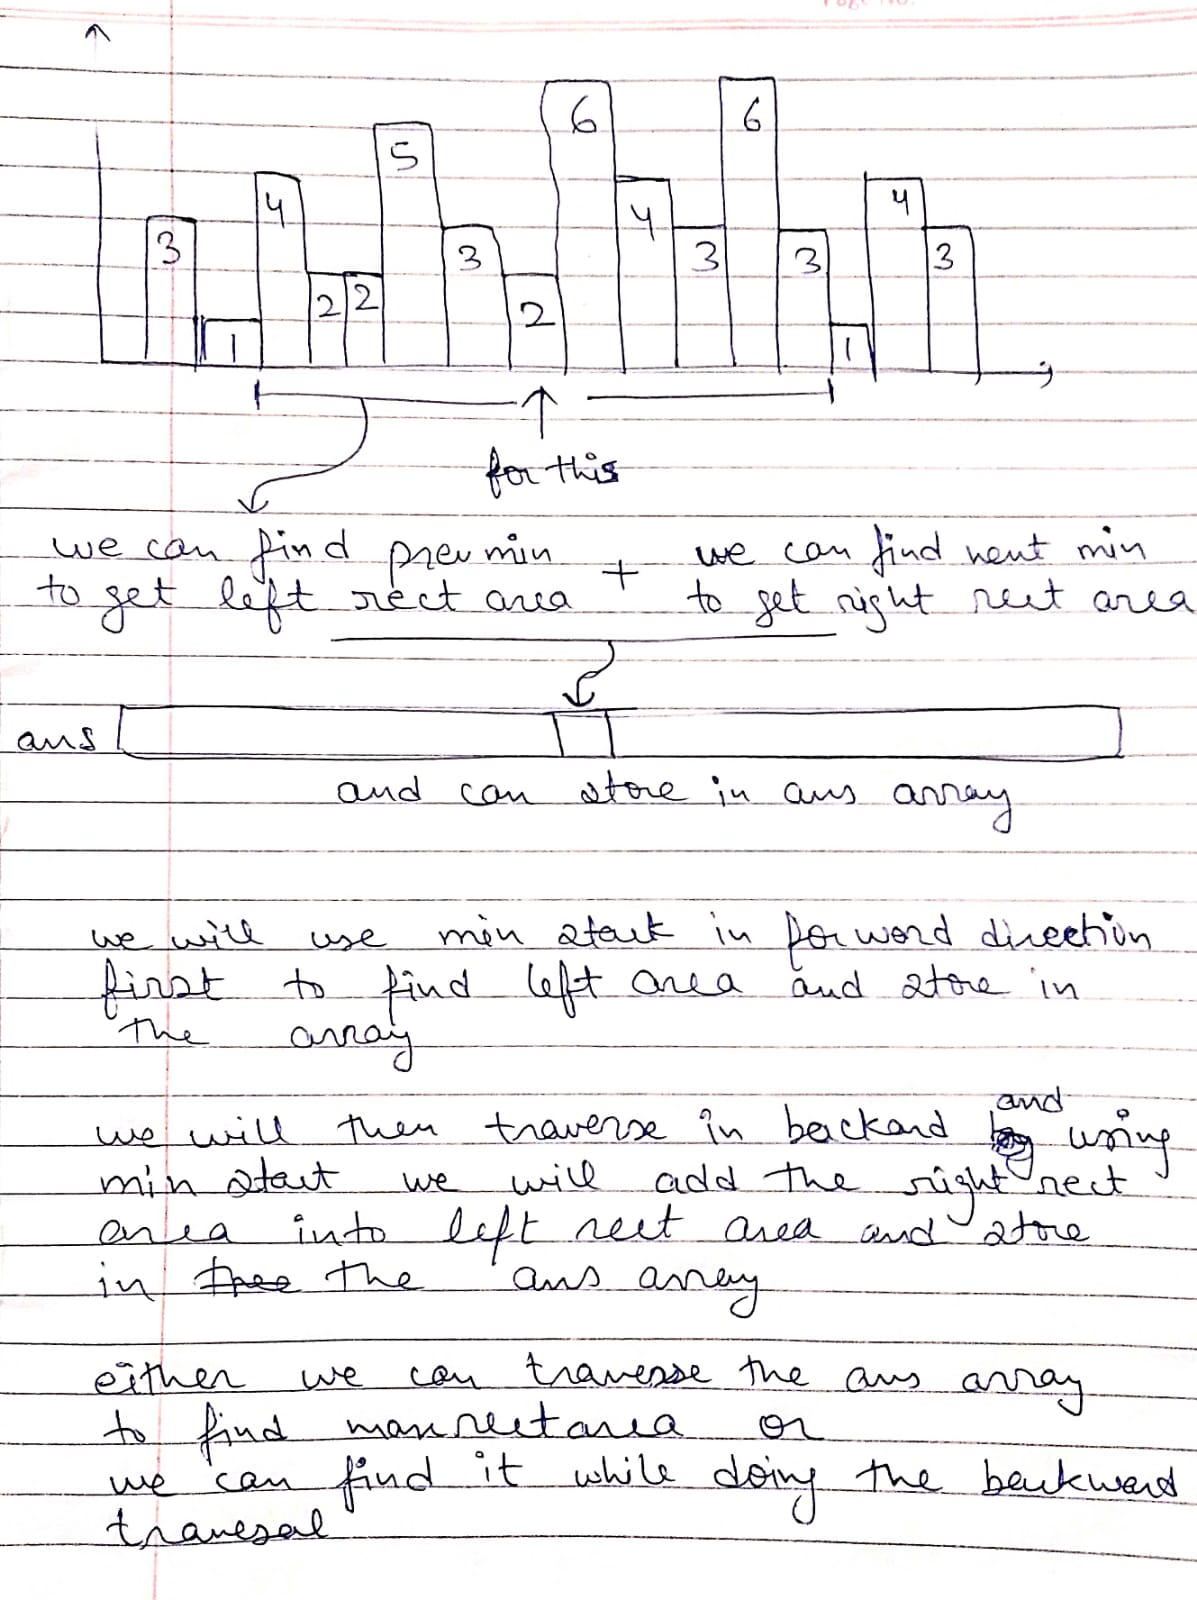 Page No.
3 1 4 2 2 5 3 2 6 4 3 6 3 1 4 3
for this
we can find prev min + we can find next min
to get left rect area to get right rect area
ans
and can store in ans array
we will use min stack in forword direction
first to find left area and store in
the array
we will then traverse in backard and using
min stack we will add the right rect
area into left rect area and store
in the ans array
either we can travesse the ans array
to find maxrectarea or
we can find it while doing the backward
travesal